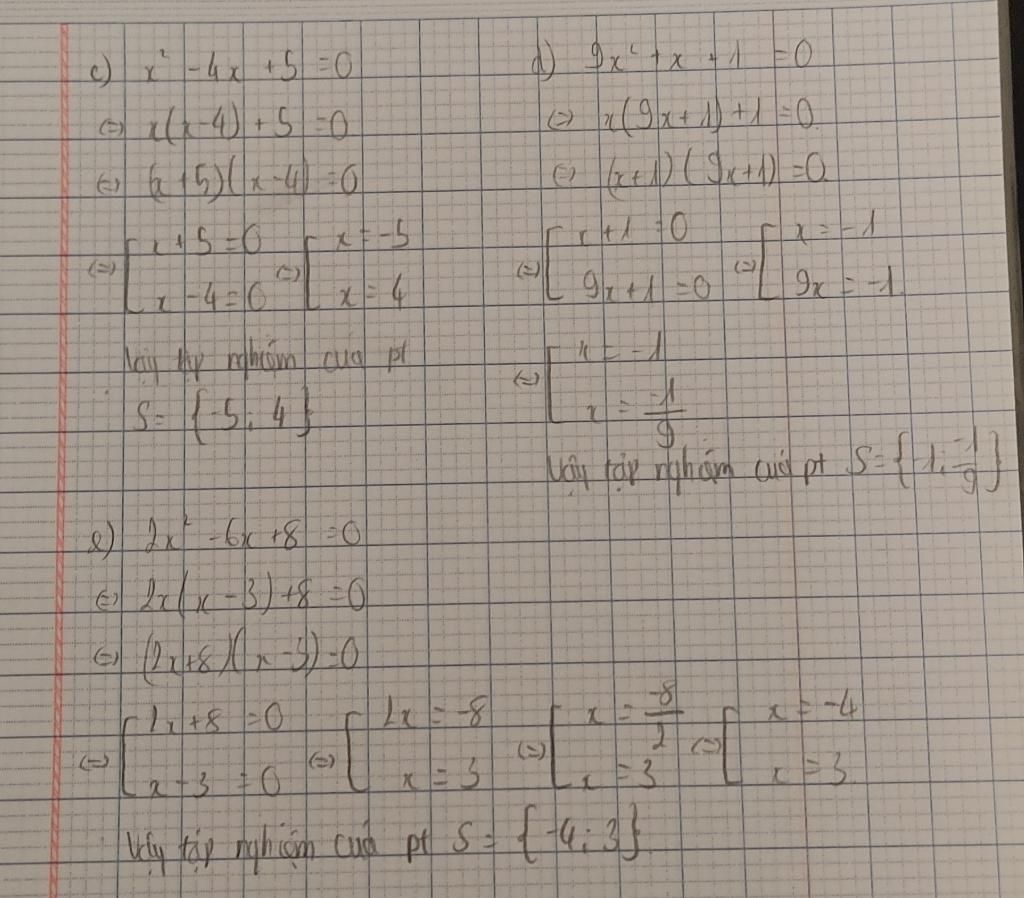 c) x² - 4x + 5 = 0
⇔ x(x-4) + 5 = 0
⇔ (x+5)(x-4) = 0
⇔ [ x+5 = 0 ⇔ [ x = -5
x-4 = 0 x = 4
Vậy tập nghiệm của pt
S = {-5; 4}
d) 9x² + x + 1 = 0
⇔ x(9x+1) + 1 = 0
⇔ (x+1)(9x+1) = 0
⇔ [ x+1 = 0 ⇔ [ x = -1
9x+1 = 0 9x = -1
⇔ [ x = -1
x = -1/9
Vậy tập nghiệm của pt S = {-1; -1/9}
e) 2x² - 6x + 8 = 0
⇔ 2x(x-3) + 8 = 0
⇔ (2x+8)(x-3) = 0
⇔ [ 2x+8 = 0 ⇔ [ 2x = -8 ⇔ [ x = -8/2 ⇔ [ x = -4
x-3 = 0 x = 3 x = 3 x = 3
Vậy tập nghiệm của pt S = {-4; 3}